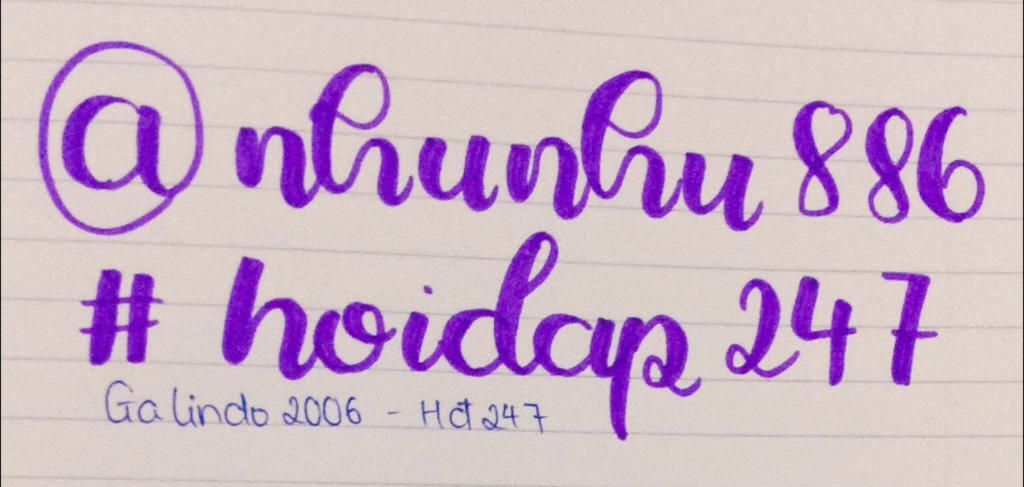 @nhunhu886
#hoidap247
Galindo 2006 - Hđ247